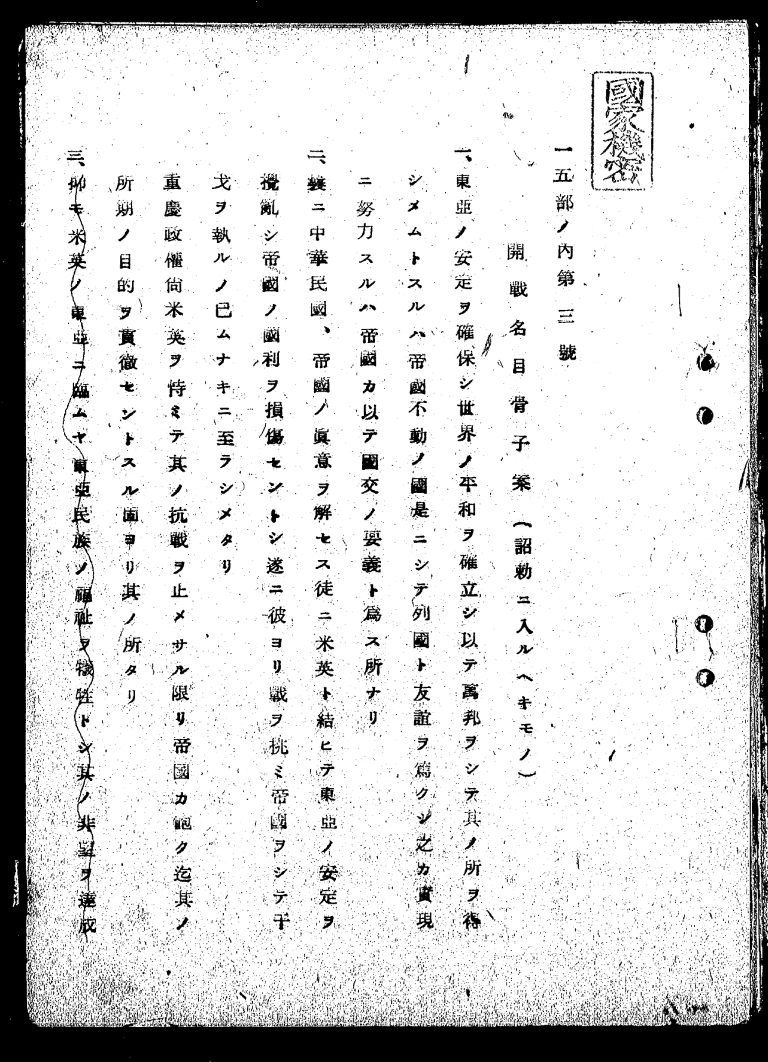 國家機密
一五部ノ內第三號
開戰名目骨子案(詔勅ニ入ルヘキモノ)
一、東亞ノ安定ヲ確保シ世界ノ平和ヲ確立シ以テ萬邦ヲシテ其ノ所ヲ得
シメムトスルハ帝國不動ノ國是ニシテ列國ト友誼ヲ篤クシ之カ實現
ニ努力スルハ帝國カ以テ國交ノ要義ト爲ス所ナリ
二、曩ニ中華民國、帝國ノ眞意ヲ解セス徒ニ米英ト結ヒテ東亞ノ安定ヲ
攪亂シ帝國ノ國利ヲ損傷セントシ遂ニ彼ヨリ戰ヲ挑ミ帝國ヲシテ干
戈ヲ執ルノ已ムナキニ至ラシメタリ
重慶政權尙米英ヲ恃ミテ其ノ抗戰ヲ止メサル限リ帝國カ飽ク迄其ノ
所期ノ目的ヲ貫徹セントスル固ヨリ其ノ所タリ
三、抑モ米英ノ東亞ニ臨ムヤ東亞民族ノ福祉ヲ犧牲トシ其ノ非望ヲ達成